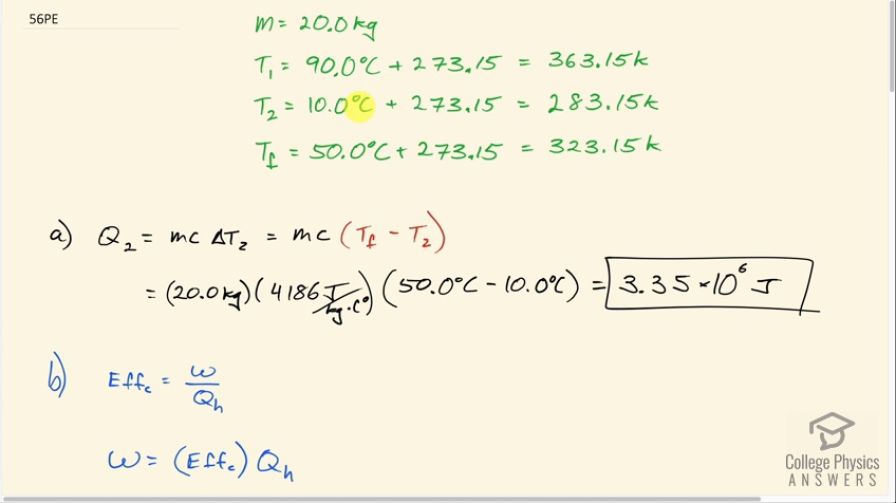 56PE
m = 20.0 kg
T₁ = 90.0°C + 273.15 = 363.15 k
T₂ = 10.0°C + 273.15 = 283.15 k
T_f = 50.0°C + 273.15 = 323.15 k
a) Q₂ = mc ΔT₂ = mc (T_f - T₂)
= (20.0 kg)(4186 J/kg·C°)(50.0°C - 10.0°C) = 3.35 × 10⁶ J
b) Eff_c = W/Q_h
W = (Eff_c) Q_h
College Physics
ANSWERS